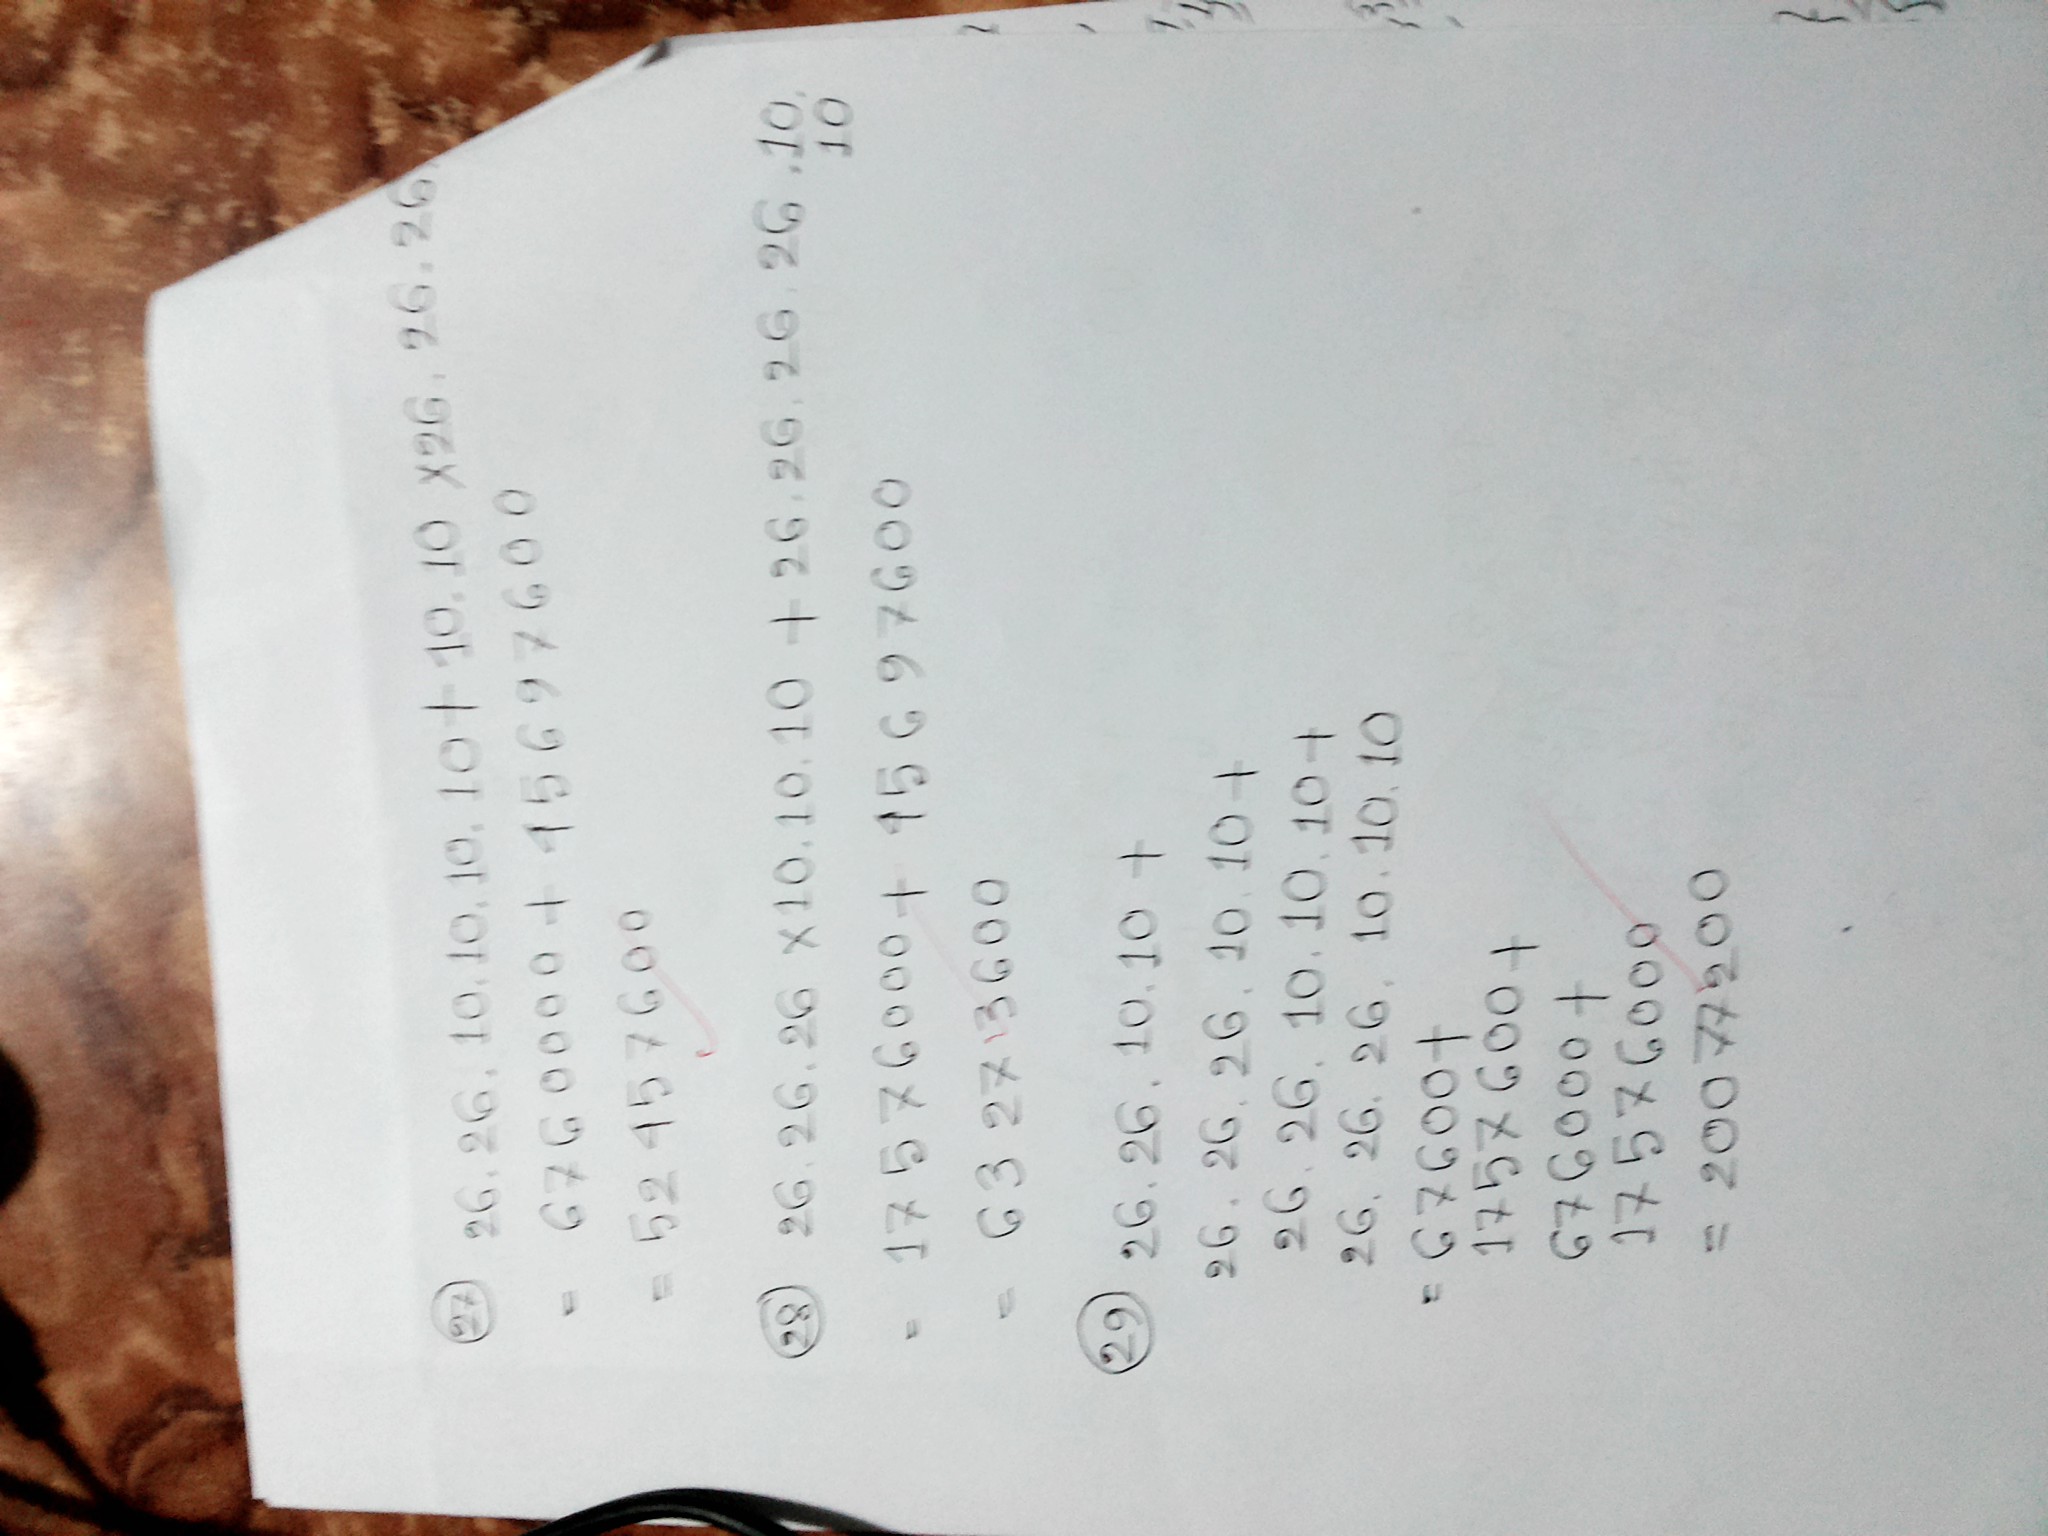 27 26.26.10.10.10.10+10.10×26.26.26.
= 6760000+45697600
= 52457600
28 26.26.26×10.10.10+26.26.26.26.10.
10
= 17576000+45697600
= 63273600
29 26.26.10.10+
26.26.26.10.10+
26.26.10.10.10+
26.26.26.10.10.10
= 67600+
1757600+
676000+
17576000
= 20077200